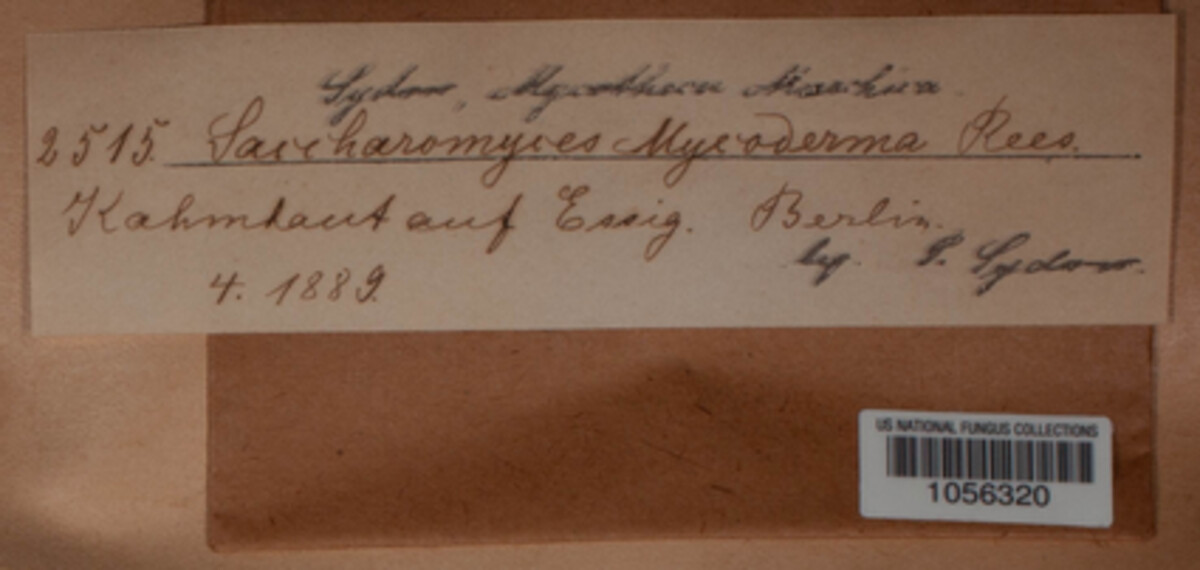 Sydow, Mycotheca Marchica.
2515. Saccharomyces Mycoderma Rees.
Kahmhaut auf Essig. Berlin.
4. 1889.
leg. P. Sydow.
US NATIONAL FUNGUS COLLECTIONS
1056320